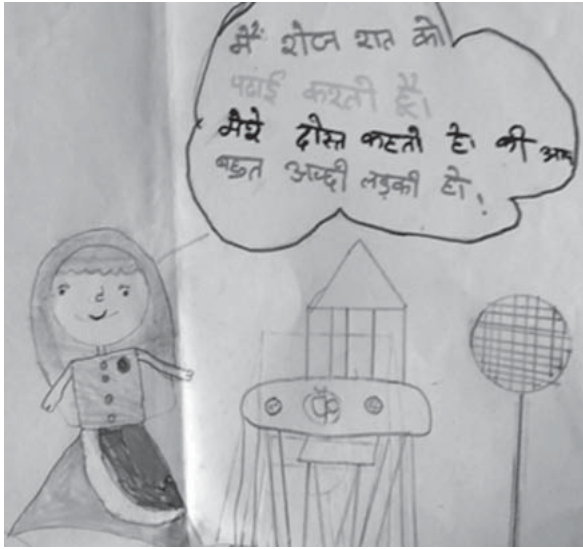 मैं रोज रात को
पढाई करती हूँ।
मेरे दोस्त कहते है। की आप
बहुत अच्छी लड़की हो।